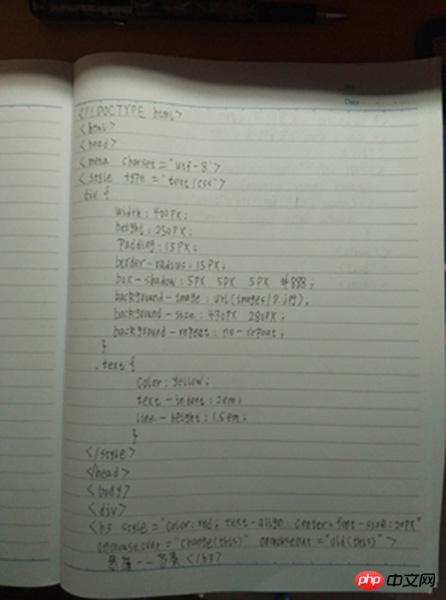 Date
<!DOCTYPE html>
<html>
<head>
<meta charset="utf-8">
<style type="text/css">
div {
width: 400px;
height: 250px;
padding: 15px;
border-radius: 15px;
box-shadow: 5px 5px 5px #888;
background-image: url(images/8.jpg);
background-size: 430px 280px;
background-repeat: no-repeat;
}
.text {
color: yellow;
text-indent: 2em;
line-height: 1.5em;
}
</style>
</head>
<body>
<div>
<h3 style="color: red; text-align: center; font-size: 20px"
onmouseover="change(this)" onmouseout="old(this)">
</h3>
php 中文网